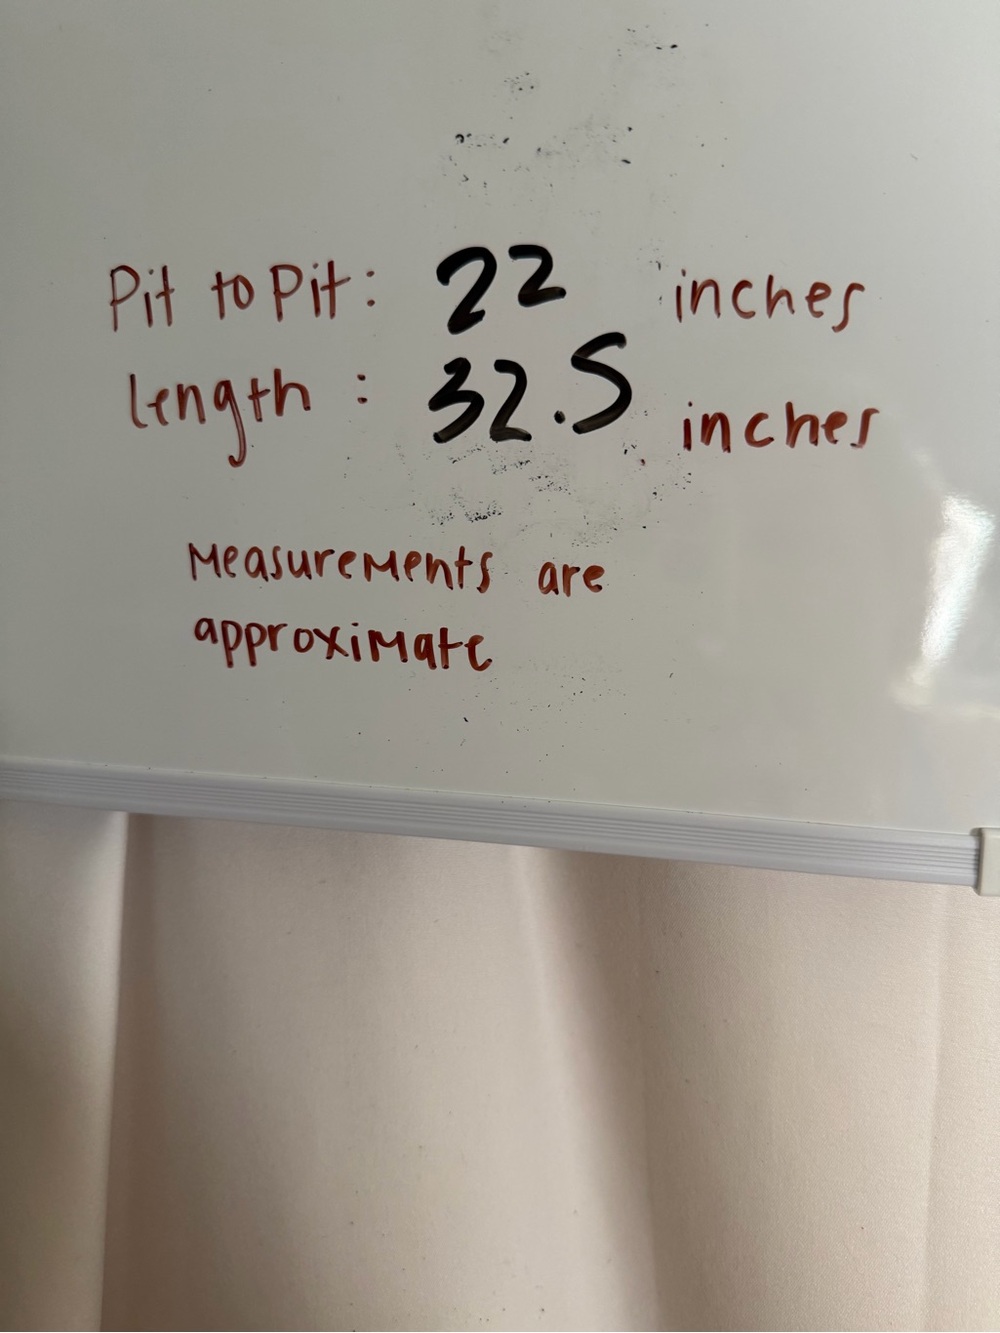 Pit to Pit: 22 inches
length: 32.5 inches
Measurements are
approximate